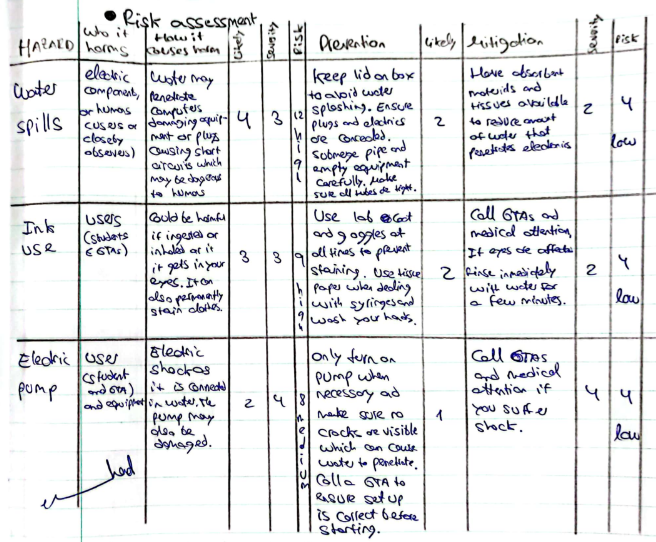 • Risk assessment
HAZARD
who it
harms
How it
causes harm
Likely
Severity
Risk
Prevention
Likely
Mitigation
Severity
Risk
Water
spills
electric
component,
or humans
(users or
closeby
observers)
Water may
penetrate
computers
damaging equip-
ment or plugs
causing short
circuits which
may be dangerous
to humans
4
3
12
high
Keep lid on box
to avoid water
splashing. Ensure
plugs and electrics
are concealed.
Submerge pipe and
empty equipment
carefully. Make
sure all tubes are tight.
2
Have absorbent
materials and
tissues available
to reduce amount
of water that
penetrates electronics
2
4
low
Ink
use
users
(students
& GTAs)
Could be harmful
if ingested or
inhaled or if
it gets in your
eyes. It can
also permanently
stain clothes.
3
3
9
high
Use lab coat
and goggles at
all times to prevent
staining. Use tissue
paper when dealing
with syringes and
wash your hands.
2
Call GTAs and
medical attention.
If eyes are affected
rinse immediately
with water for
a few minutes.
2
4
low
Electric
pump
User
(student
and GTA)
and equipment
Electric
shock as
it is connected
in water. The
pump may
also be
damaged.
2
4
8
medium
only turn on
pump when
necessary and
make sure no
cracks are visible
which can cause
water to penetrate.
Call a GTA to
ensure set up
is correct before
starting.
1
Call GTAs
and medical
attention if
you suffer
shock.
4
4
low